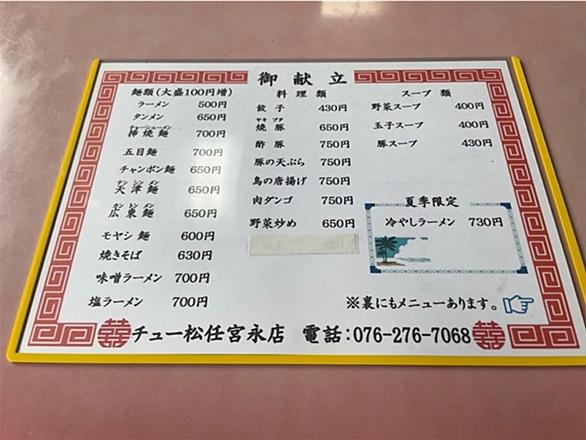 御献立
麺類(大盛100円増)
ラーメン 500円
タンメン 650円
揮焼麺 700円
五目麺 700円
チャンポン麺 650円
テンシンメン
天津麺 650円
カントンメン
広東麺 650円
モヤシ麺 600円
焼きそば 630円
味噌ラーメン 700円
塩ラーメン 700円
料理類
餃子 430円
ヤキブタ
焼豚 650円
酢豚 750円
豚の天ぷら 750円
鳥の唐揚げ 750円
肉ダンゴ 750円
野菜炒め 650円
スープ類
野菜スープ 400円
玉子スープ 400円
豚スープ 430円
夏季限定
冷やしラーメン 730円
※裏にもメニューあります。
チュー松任宮永店 電話:076-276-7068